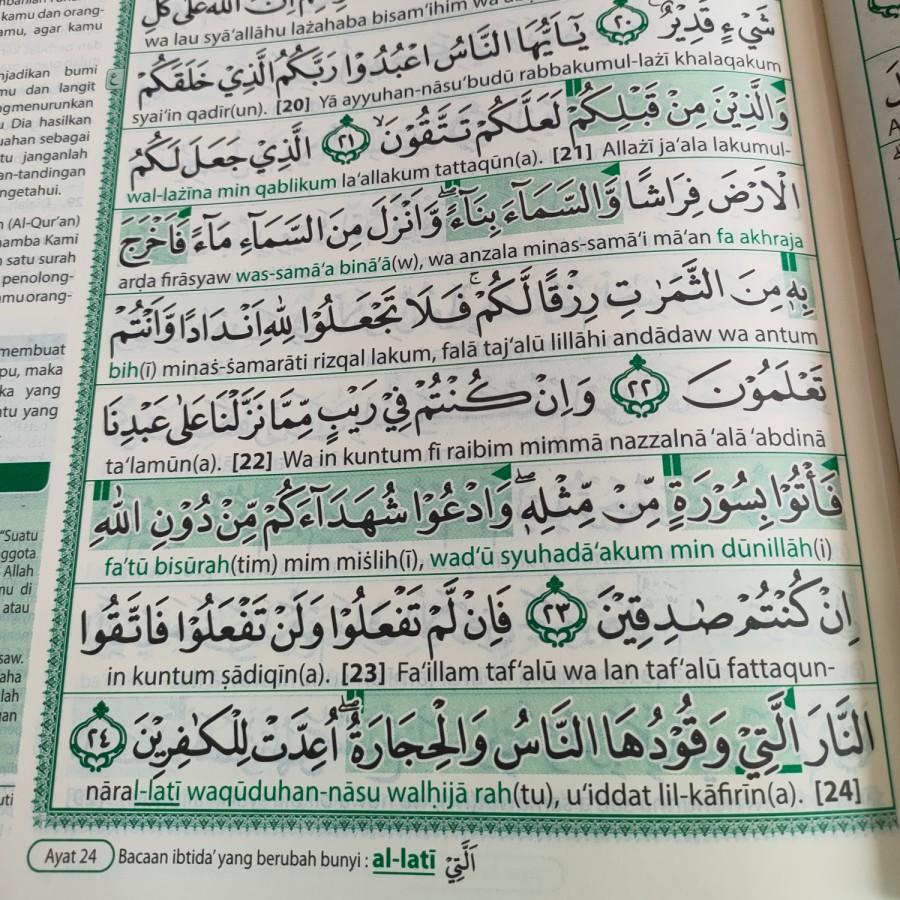 kamu dan orang-
amu, agar kamu
njadikan bumi
mu dan langit
ngmenurunkan
u Dia hasilkan
uahan sebagai
tu janganlah
an-tandingan
ngetahui.
n (Al-Qur'an)
hamba Kami
h satu surah
penolong-
amuorang-
membuat
pu, maka
ka yang
tu yang
"Suatu
ggota
Allah
mu di
atau
saw.
aha
lah
an
uti
wa lau syā'allāhu lażahaba bisam'ihim wa
شَيْءٍ قَدِيْرٌ ٢٠ يٰٓاَيُّهَا النَّاسُ اعْبُدُوْا رَبَّكُمُ الَّذِيْ خَلَقَكُمْ
syai'in qadīr(un). [20] Yā ayyuhan-nāsu'budū rabbakumul-lażī khalaqakum
وَالَّذِيْنَ مِنْ قَبْلِكُمْ لَعَلَّكُمْ تَتَّقُوْنَۙ ٢١ الَّذِيْ جَعَلَ لَكُمُ
wal-lażīna min qablikum la'allakum tattaqūn(a). [21] Allażī ja'ala lakumul-
الْاَرْضَ فِرَاشًا وَّالسَّمَاۤءَ بِنَاۤءًۖ وَّاَنْزَلَ مِنَ السَّمَاۤءِ مَاۤءً فَاَخْرَجَ
arḍa firāsyaw was-samā'a binā'ā(w), wa anzala minas-samā'i mā'an fa akhraja
بِهٖ مِنَ الثَّمَرٰتِ رِزْقًا لَّكُمْۚ فَلَا تَجْعَلُوْا لِلّٰهِ اَنْدَادًا وَّاَنْتُمْ
bih(ī) minaṡ-ṡamarāti rizqal lakum, falā taj'alū lillāhi andādaw wa antum
تَعْلَمُوْنَ ٢٢ وَاِنْ كُنْتُمْ فِيْ رَيْبٍ مِّمَّا نَزَّلْنَا عَلٰى عَبْدِنَا
ta'lamūn(a). [22] Wa in kuntum fī raibim mimmā nazzalnā 'alā 'abdinā
فَأْتُوْا بِسُوْرَةٍ مِّنْ مِّثْلِهٖۖ وَادْعُوْا شُهَدَاۤءَكُمْ مِّنْ دُوْنِ اللّٰهِ
fa'tū bisūrah(tim) mim miṡlih(ī), wad'ū syuhadā'akum min dūnillāh(i)
اِنْ كُنْتُمْ صٰدِقِيْنَ ٢٣ فَاِنْ لَّمْ تَفْعَلُوْا وَلَنْ تَفْعَلُوْا فَاتَّقُوا
in kuntum ṣādiqīn(a). [23] Fa'illam taf'alū wa lan taf'alū fattaqun-
النَّارَ الَّتِيْ وَقُوْدُهَا النَّاسُ وَالْحِجَارَةُۖ اُعِدَّتْ لِلْكٰفِرِيْنَ ٢٤
nāral-latī waqūduhan-nāsu walḥijā rah(tu), u'iddat lil-kāfirīn(a). [24]
Ayat 24 Bacaan ibtida' yang berubah bunyi : al-latī اَلَّتِيْ